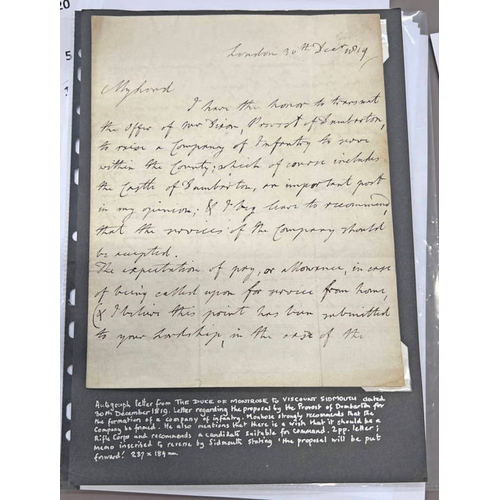 20
5
London 30th Decr 1819
My Lord
I have the honor to transmit
the Offer of Mr Dixon, Provost of Dumbarton,
to raise a Company of Infantry to serve
within the County; which of course includes
the Castle of Dumbarton, an important post
in my opinion; & I beg leave to recommend
that the services of the Company should
be accepted.
The expectation of pay, or allowance, in case
of being called upon for service from home,
(& I believe this point has been submitted
to your Lordship, in the case of the
Autograph letter from THE DUCE OF MONTROSE to VISCOUNT SIDMOUTH dated
30th December 1819. Letter regarding the proposal by the Provost of Dumbarton for
the formation of a company of infantry. Montrose strongly recommends that the
Company be formed. He also mentions that there is a wish that it should be a
Rifle Corps and recommends a candidate suitable for command. 2pp. letter;
memo inscribed to reverse by Sidmouth stating 'the proposal will be put
forward'. 237 x 184mm